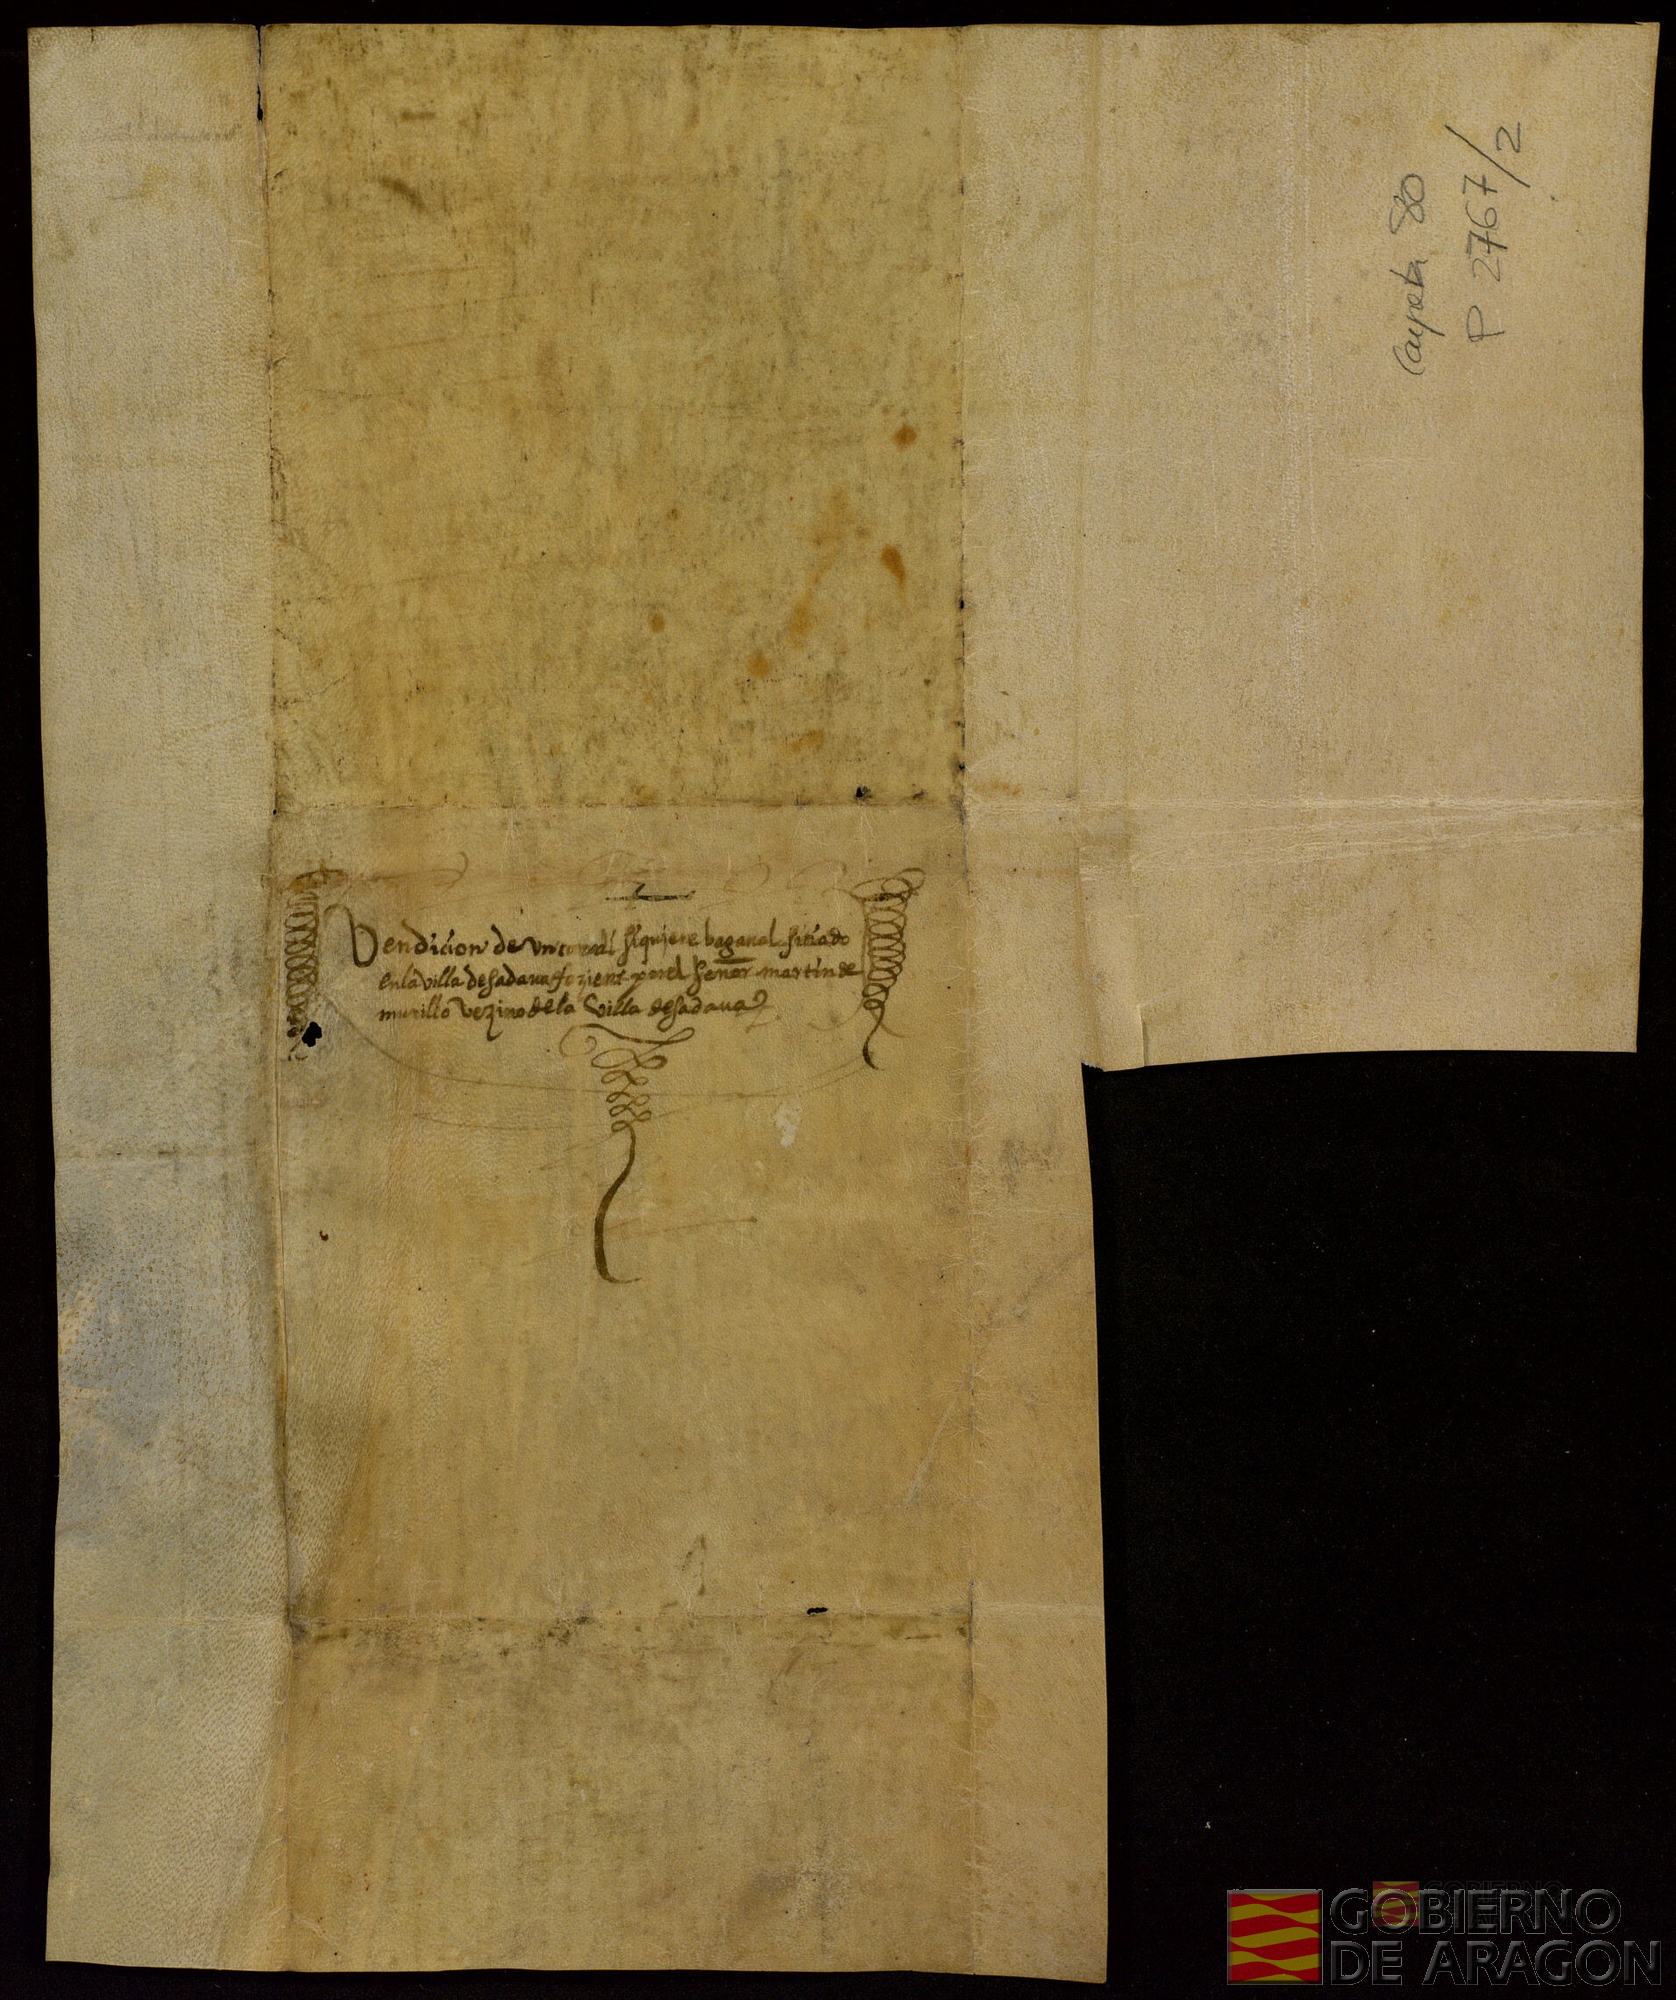 Carpeta 80
P 2767/2
Vendicion de un corral siquiere baganal sitiado
en la villa de sadaua ffazient por el señor martin de
murillo vezino de la villa de sadaua
GOBIERNO
DE ARAGON